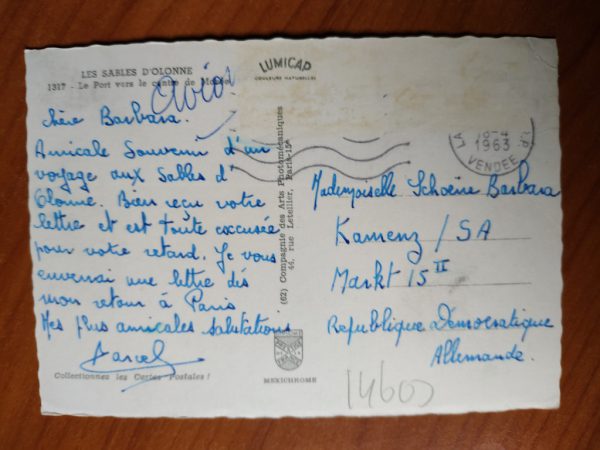 LES SABLES D'OLONNE
1317 - Le Port vers le centre de
avion
LUMICAP
COULEURS NATURELLES
chère Barbara.
Amicale Souvenir d'un
voyage aux Sables d'
Olonne. Bien reçu votre
lettre et est toute excusée
pour votre retard. Je vous
enverrai une lettre dès
mon retour à Paris
Mes plus amicales salutations
Marcel
Collectionnez les Cartes Postales !
(62) Compagnie des Arts Photomécaniques
44, rue Letellier, Paris-15e
MEXICHROME
LA
18-4
1963
VENDEE
Mademoiselle Schoeine Barbara
Kamenz / SA
Markt 15 II
Republique Democratique
Allemande.
14603